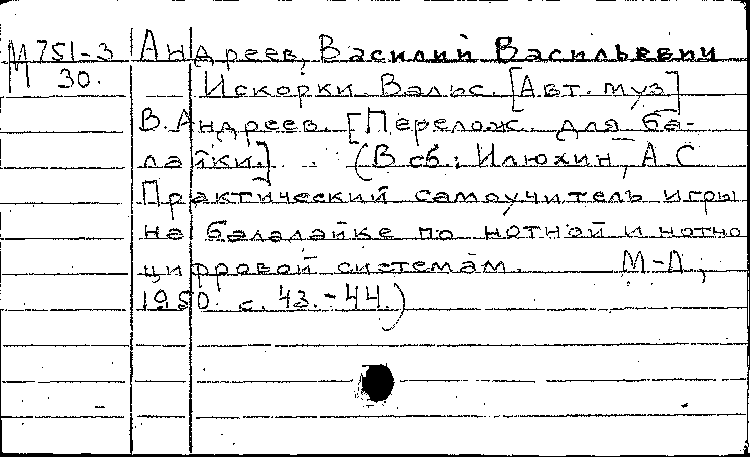 М 751-3 Андреев, Василий Васильевич
М 30. Искорки. Вальс. [Авт. муз]
В. Андреев. [Перелож. для ба-
лайки.] (В сб.: Илюхин, А.С
Практический самоучитель игры
на балалайке по нотной и нотно
цифровой системам. М-Л,
1950. с. 43.-44.)